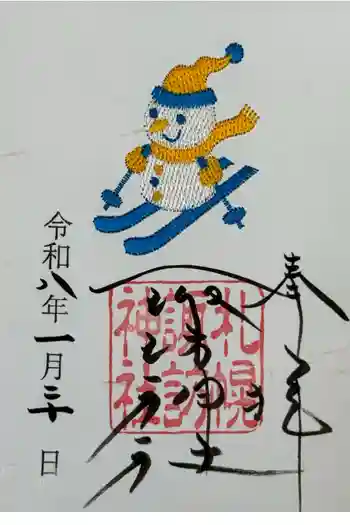 奉拝
札幌
諏訪
神社
令和八年一月三十日